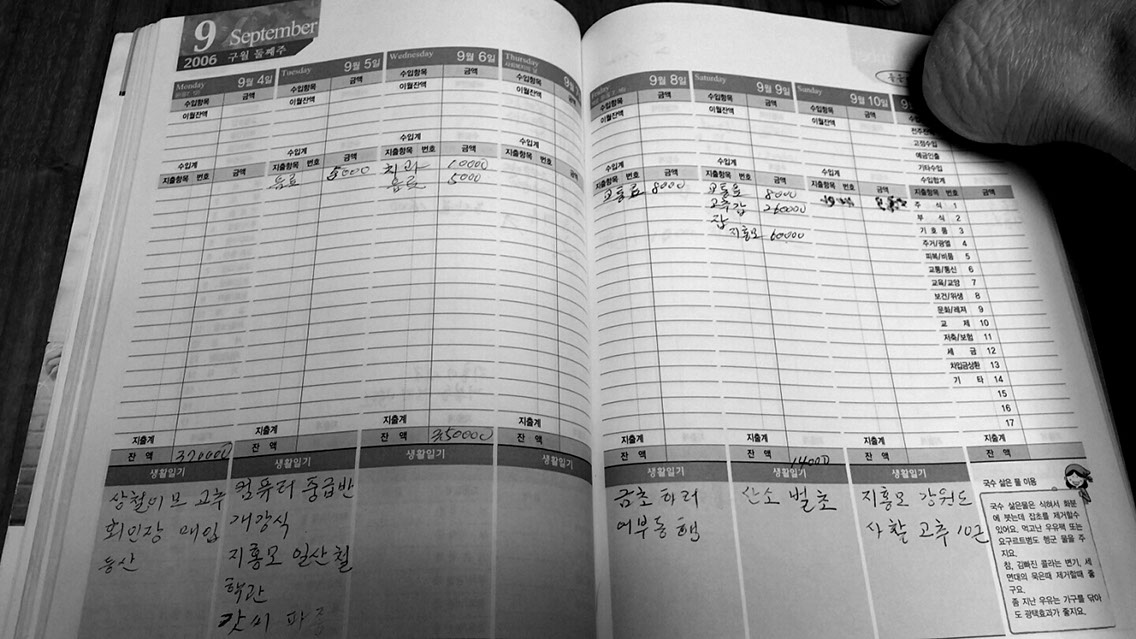 9 September
2006 구월 둘째주
Monday 9월 4일
수입항목 금액
이월잔액
수입계
지출항목 번호 금액
지출계
잔 액 370000
생활일기
상철이모 고추
회인장 매입
등산
Tuesday 9월 5일
수입항목 금액
이월잔액
수입계
지출항목 번호 금액
음료 5000
지출계
잔 액
생활일기
컴퓨터 중급반
개강식
지홍모 일산철
학관
갓씨
Wednesday 9월 6일
수입항목 금액
이월잔액
수입계
지출항목 번호 금액
치과 10000
음료 5000
지출계 350000
잔 액
생활일기
Thursday
수입항목 금액
이월잔액
수입계
지출항목 번호 금액
지출계
잔 액
생활일기
9월 8일
수입항목 금액
이월잔액
수입계
지출항목 번호 금액
교통료 8000
지출계
잔 액
생활일기
금초하러
여부동행
Saturday 9월 9일
수입항목 금액
이월잔액
수입계
지출항목 번호 금액
교통료 8000
고추값 260000
잡
지홍모 60000
지출계
잔 액 14000
생활일기
산소 벌초
Sunday 9월 10일
수입항목 금액
이월잔액
수입계
지출항목 번호 금액
지출계
잔 액
생활일기
지홍모 강원도
사찰 고추 10근
고정수입
예금인출
기타수입
수입합계
지출항목 번호 금액
주 식 1
부 식 2
기 호 품 3
주거/광열 4
피복/비품 5
교통/통신 6
교육/교양 7
보건/위생 8
문화/레저 9
교 제 10
저축/보험 11
세 금 12
차입금상환 13
기 타 14
15
16
17
지출계
잔 액
국수 삶은 물 이용
국수 삶은물은 식혀서 화분
에 붓는데 잡초를 제거할수
있어요. 먹고난 우유팩 또는
요구르트병도 헹군 물을 주
지요.
참, 김빠진 콜라는 변기, 세
면대의 묵은때 제거할때 좋
구요.
좀 지난 우유는 가구를 닦아
도 광택효과가 좋지요.